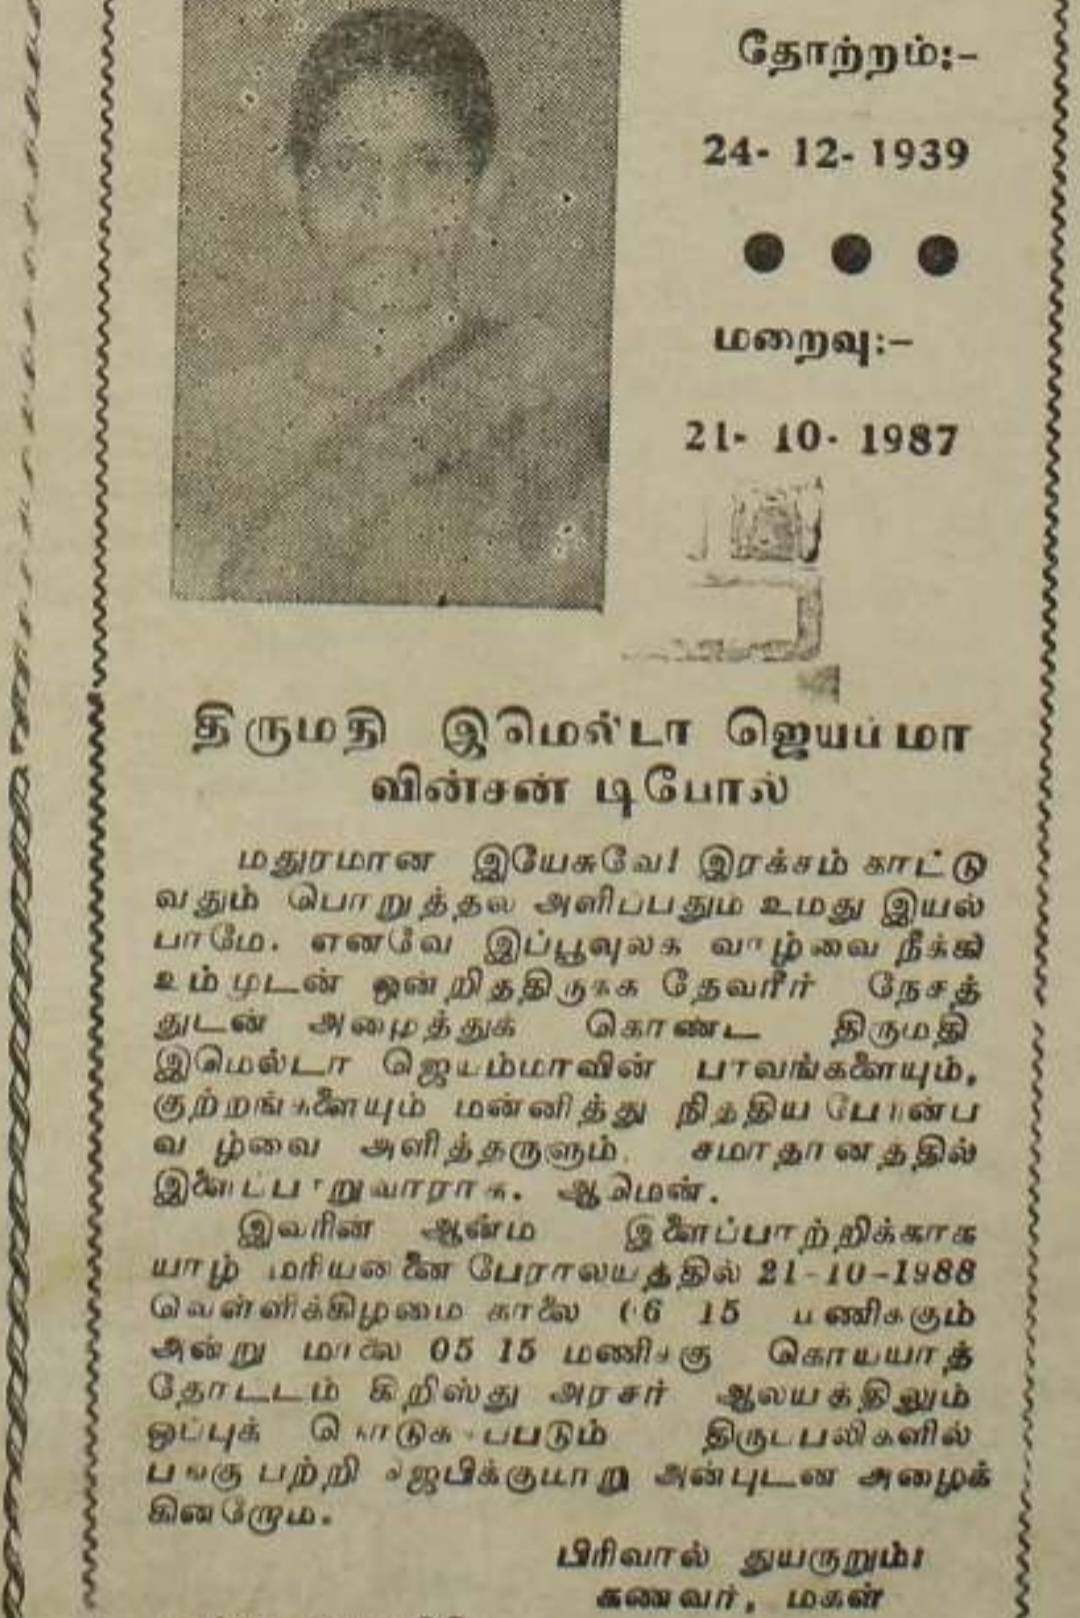 தோற்றம்:-
24- 12- 1939
மறைவு:-
21- 10- 1987
திருமதி இமெல்டா ஜெயம்மா
வின்சன் டிபோல்
மதுரமான இயேசுவே! இரக்சம் காட்டு
வதும் பொறுத்தல் அளிப்பதும் உமது இயல்
பாமே. எனவே இப்பூவுலக வாழ்வை நீக்கி
உம்முடன் ஒன்றித்திருக்க தேவரீர் நேசத்
துடன் அழைத்துக் கொண்ட திருமதி
இமெல்டா ஜெயம்மாவின் பாவங்களையும்,
குற்றங்களையும் மன்னித்து நித்திய பேரின்ப
வாழ்வை அளித்தருளும். சமாதானத்தில்
இளைப்பாறுவாராக. ஆமென்.
இவரின் ஆன்ம இளைப்பாற்றிக்காக
யாழ் மரியன்னை பேராலயத்தில் 21-10-1988
வெள்ளிக்கிழமை காலை 06 15 மணிக்கும்
அன்று மாலை 05 15 மணிக்கு கொய்யாத்
தோட்டம் கிறிஸ்து அரசர் ஆலயத்திலும்
ஒப்புக் கொடுக்கப்படும் திருப்பலிகளில்
பங்கு பற்றி ஜெபிக்குமாறு அன்புடன் அழைக்
கின்றோம்.
பிரிவால் துயருறும்:
கணவர், மகள்